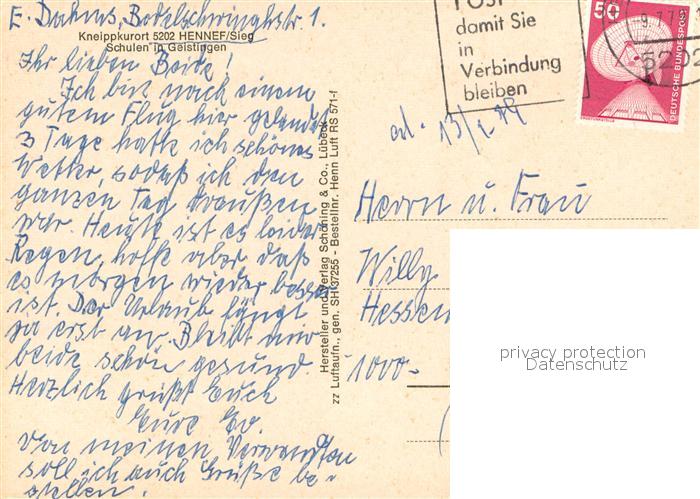 E. Dahms, Bodelschwinghstr. 1.
Kneippkurort 5202 HENNEF/Sieg
Schulen in Geistingen
Ihr lieben Beide!
Ich bin nach einem
gutem Flug hier gelandet
3 Tage hatte ich schönes
Wetter, sodaß ich den
ganzen Tag draußen
war. Heute ist es leider
Regen, hoffe aber daß
es morgen wieder besser
ist. Der Urlaub fängt
ja erst an. Bleibt mir
beide schön gesund
Herzlich grüßt Euch
Eure Ev.
Von meinen Verwandten
soll ich auch Grüße be-
stellen.
Hersteller und Verlag Schöning & Co., Lübeck
zz Luftaufn., gen. SH 37/255 - Bestellnr. Henn Luft RS 571-f
POST
damit Sie
in
Verbindung
bleiben
50
DEUTSCHE BUNDESPOST
5202
13/2
Herrn u. Frau
Willy
Hessen
1000-
privacy protection
Datenschutz